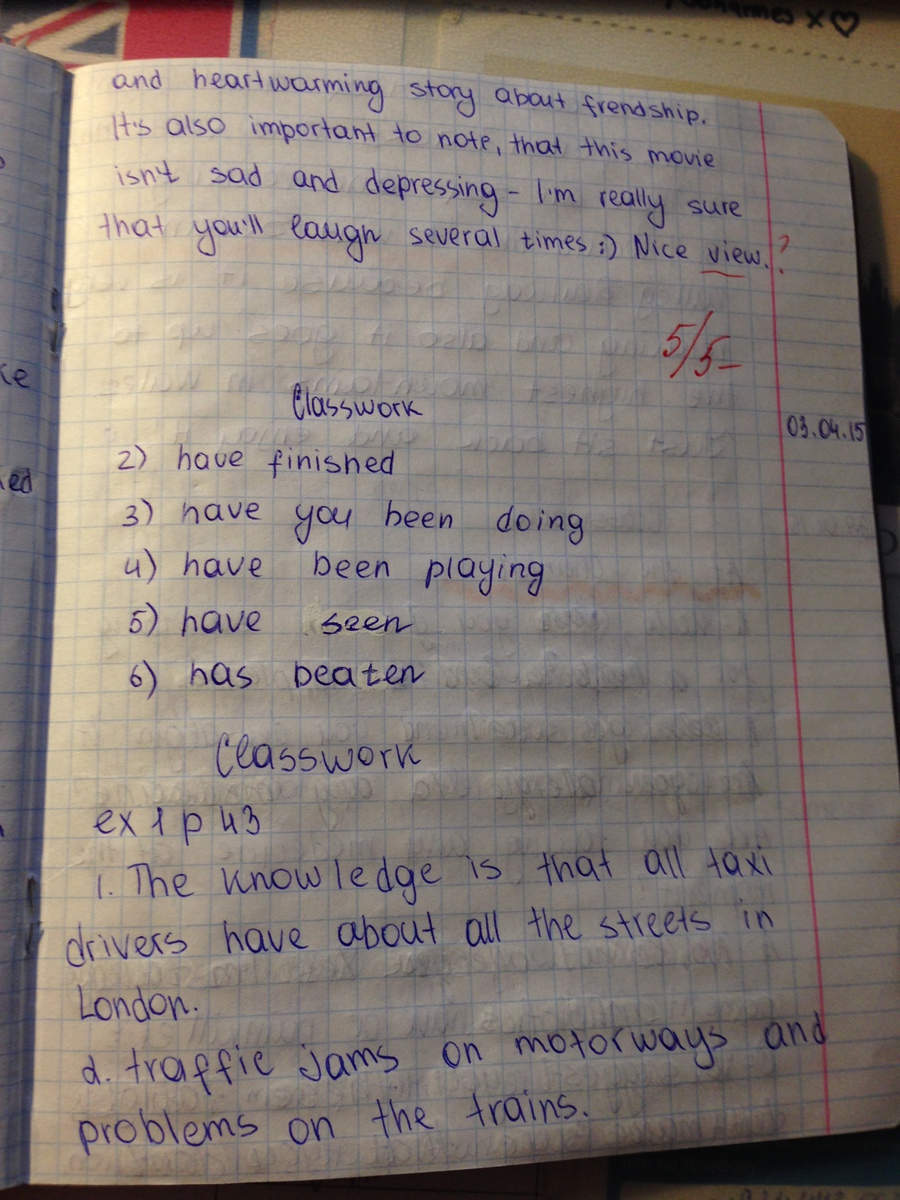 and heartwarming story about frendship.
It's also important to note, that this movie
isn't sad and depressing - I'm really sure
that you'll laugh several times :) Nice view. ?
5/5-
Classwork
03.04.15
2) have finished
3) have you been doing
4) have been playing
5) have seen
6) has beaten
Classwork
ex 1 p 43
1. The knowledge is that all taxi
drivers have about all the streets in
London.
2. traffic jams on motorways and
problems on the trains.